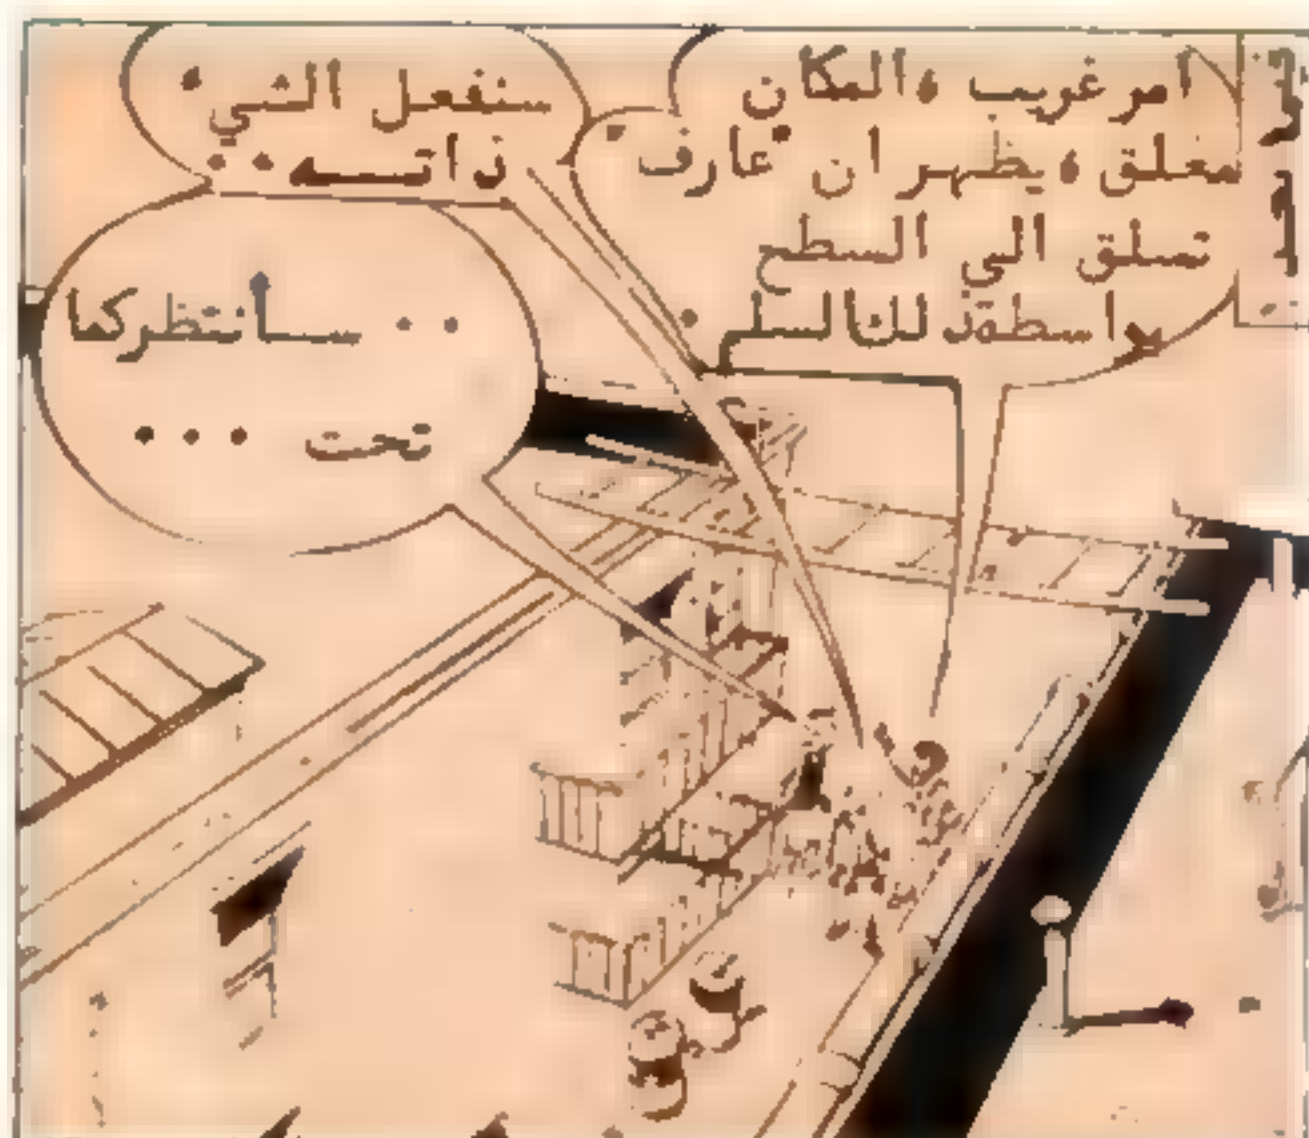 امر غريب ، المكان
مغلق ، يظهر ان "عارف"
تسلق الى السطح
بواسطة ذلك السلم .
سنفعل الشيء
ذاته ..
.. سأنتظركما
تحت ...